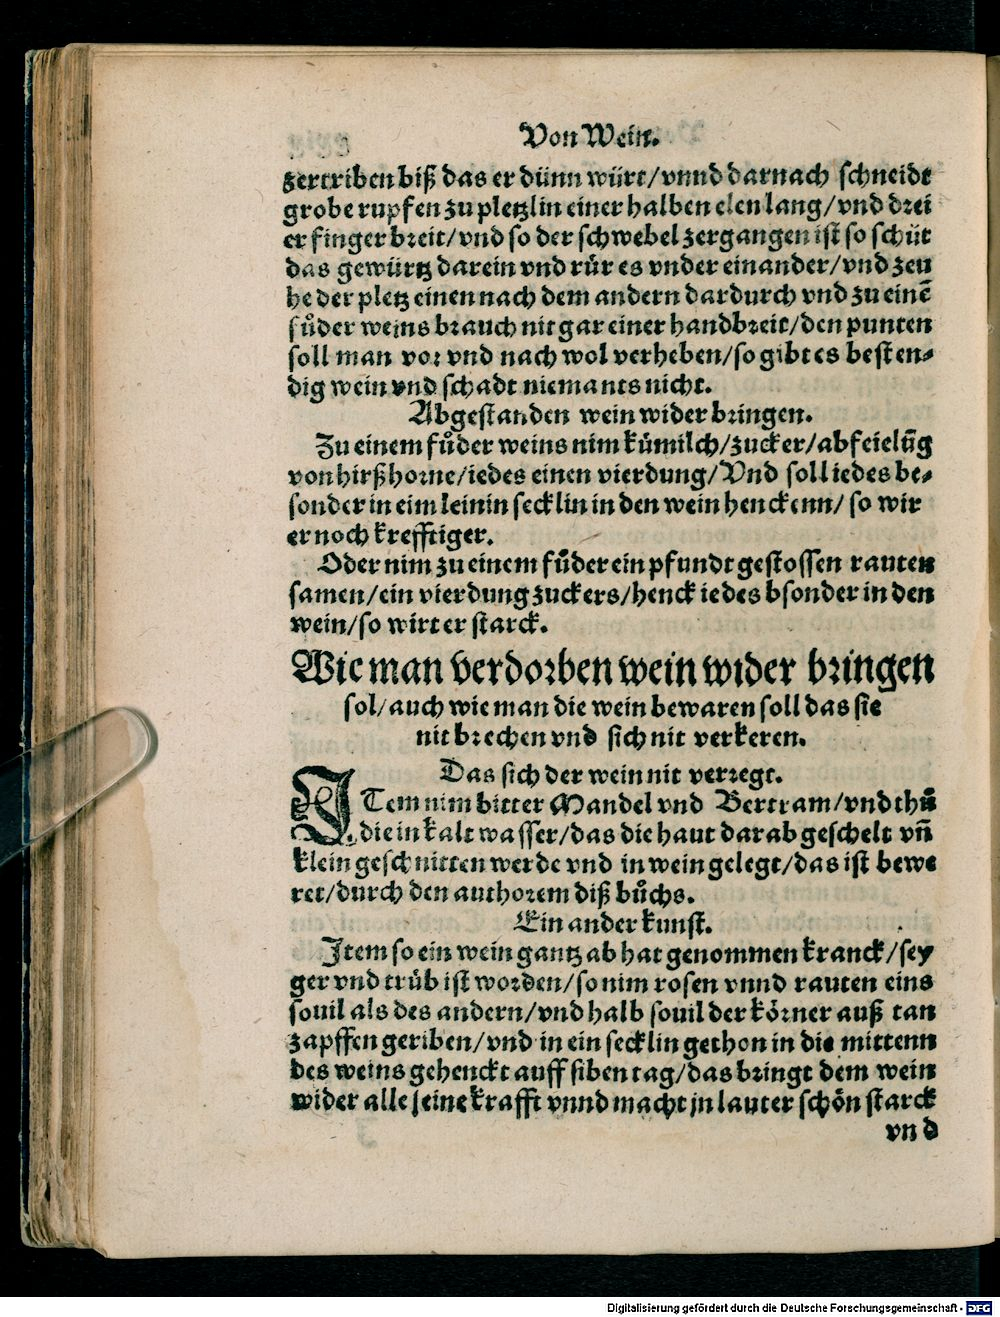 Von Wein.
zertriben biß das er dünn würt/vnnd darnach schneidt
grobe rupfen zu pletzlin einer halben elen lang/vnd drei
er finger breit/vnd so der schwebel zergangen ist so schüt
das gewürtz darein vnd rür es vnder einander/vnd zeu
he der pletz einen nach dem andern dardurch vnd zu einē
fůder weins brauch nit gar einer handbreit/den punten
soll man vor vnd nach wol verheben/so gibt es besten⸗
dig wein vnd schadt niemants nicht.
Abgestanden wein wider bringen.
Zu einem fůder weins nim kůmilch/zucker/abfeielūg
von hirßhorne/iedes einen vierdung/Vnd soll iedes be⸗
sonder in eim leinin secklin in den wein henckenn/ so wir
er noch krefftiger.
Oder nim zu einem fůder ein pfundt gestossen rauten
samen/ein vierdung zuckers/henck iedes bsonder in den
wein/so wirt er starck.
Wie man verdorben wein wider bringen
sol/auch wie man die wein bewaren soll das sie
nit brechen vnd sich nit verkeren.
Das sich der wein nit verregt.
ITem nim bitter Mandel vnd Bertram/vnd thů
die in kalt wasser/das die haut darab geschelt vñ
klein geschnitten werde vnd in wein gelegt/das ist bewe
ret/durch den authorem diß bůchs.
Ein ander kunst.
Item so ein wein gantz ab hat genommen kranck/sey
ger vnd trůb ist worden/so nim rosen vnnd rauten eins
souil als des andern/vnd halb souil der körner auß tan
zapffen geriben/vnd in ein secklin gethon in die mittenn
des weins gehenckt auff siben tag/das bringt dem wein
wider alle seine krafft vnnd macht jn lauter schön starck
vnd
Digitalisierung gefördert durch die Deutsche Forschungsgemeinschaft - DFG